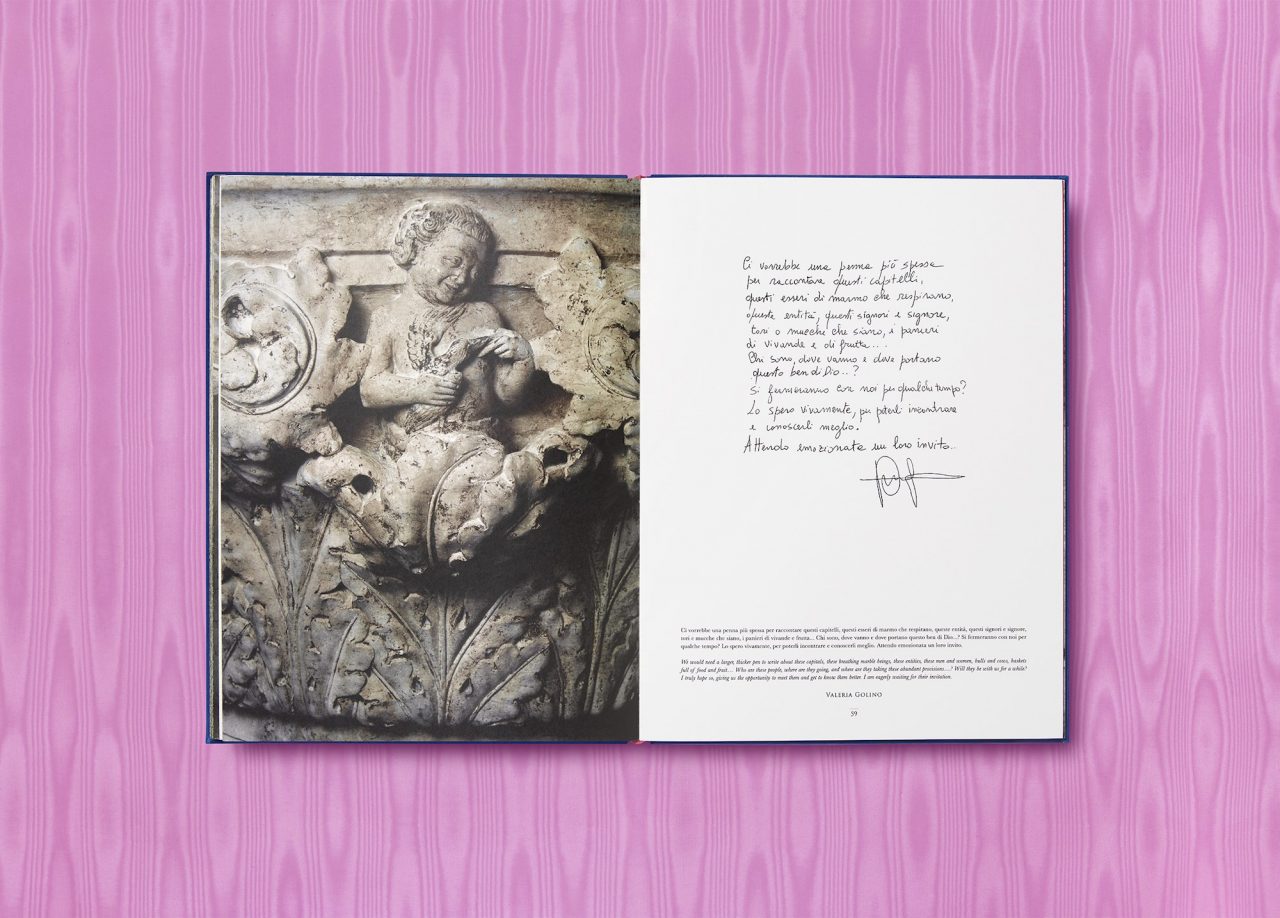 Ci vorrebbe una penna più spessa
per raccontare questi capitelli,
questi esseri di marmo che respirano,
queste entità, questi signori e signore,
tori o mucche che siano, i panieri
di vivande e di frutta....
Chi sono, dove vanno e dove portano
questo ben di Dio..?
Si fermeranno con noi per qualche tempo?
Lo spero vivamente, per poterli incontrare
e conoscerli meglio.
Attendo emozionata un loro invito..
Ci vorrebbe una penna più spessa per raccontare questi capitelli, questi esseri di marmo che respirano, queste entità, questi signori e signore,
tori e mucche che siano, i panieri di vivande e frutta... Chi sono, dove vanno e dove portano questo ben di Dio...? Si fermeranno con noi per
qualche tempo? Lo spero vivamente, per poterli incontrare e conoscerli meglio. Attendo emozionata un loro invito.
We would need a larger, thicker pen to write about these capitals, these breathing marble beings, these entities, these men and women, bulls and cows, baskets
full of food and fruit… Who are these people, where are they going, and where are they taking these abundant provisions....? Will they be with us for a while?
I truly hope so, giving us the opportunity to meet them and get to know them better. I am eagerly waiting for their invitation.
Valeria Golino
59